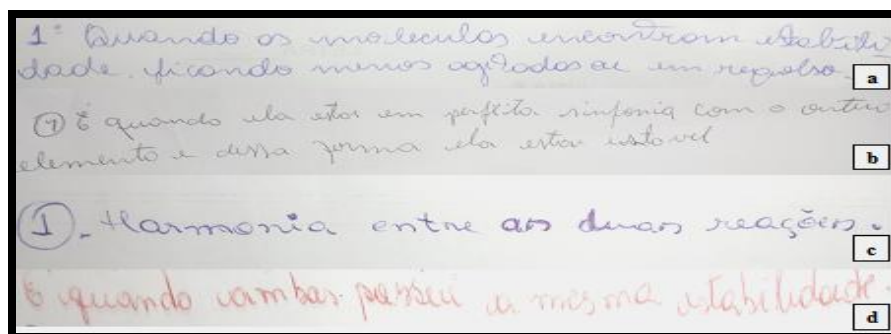 1º Quando as moleculas encontram estabili
dade, ficando menos agitadas ou em repolso. a
① É quando ela estar em perfeita sinfonia com o outro
elemento e dessa forma ela estar estavel b
① - Harmonia entre as duas reações. c
É quando ambas possui a mesma estabilidade. d